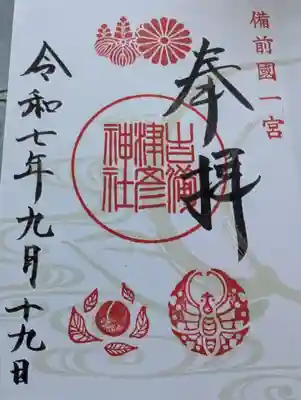 備前國一宮
奉拝
吉備
津彦
神社
令和七年九月十九日